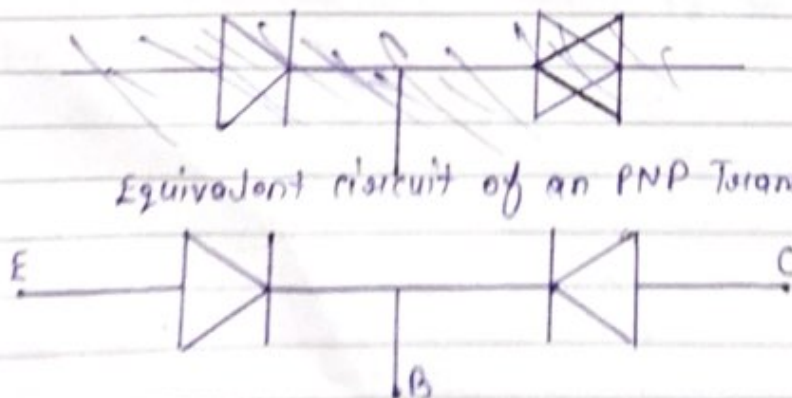 Equivalent circuit of an PNP Tran
E
C
B